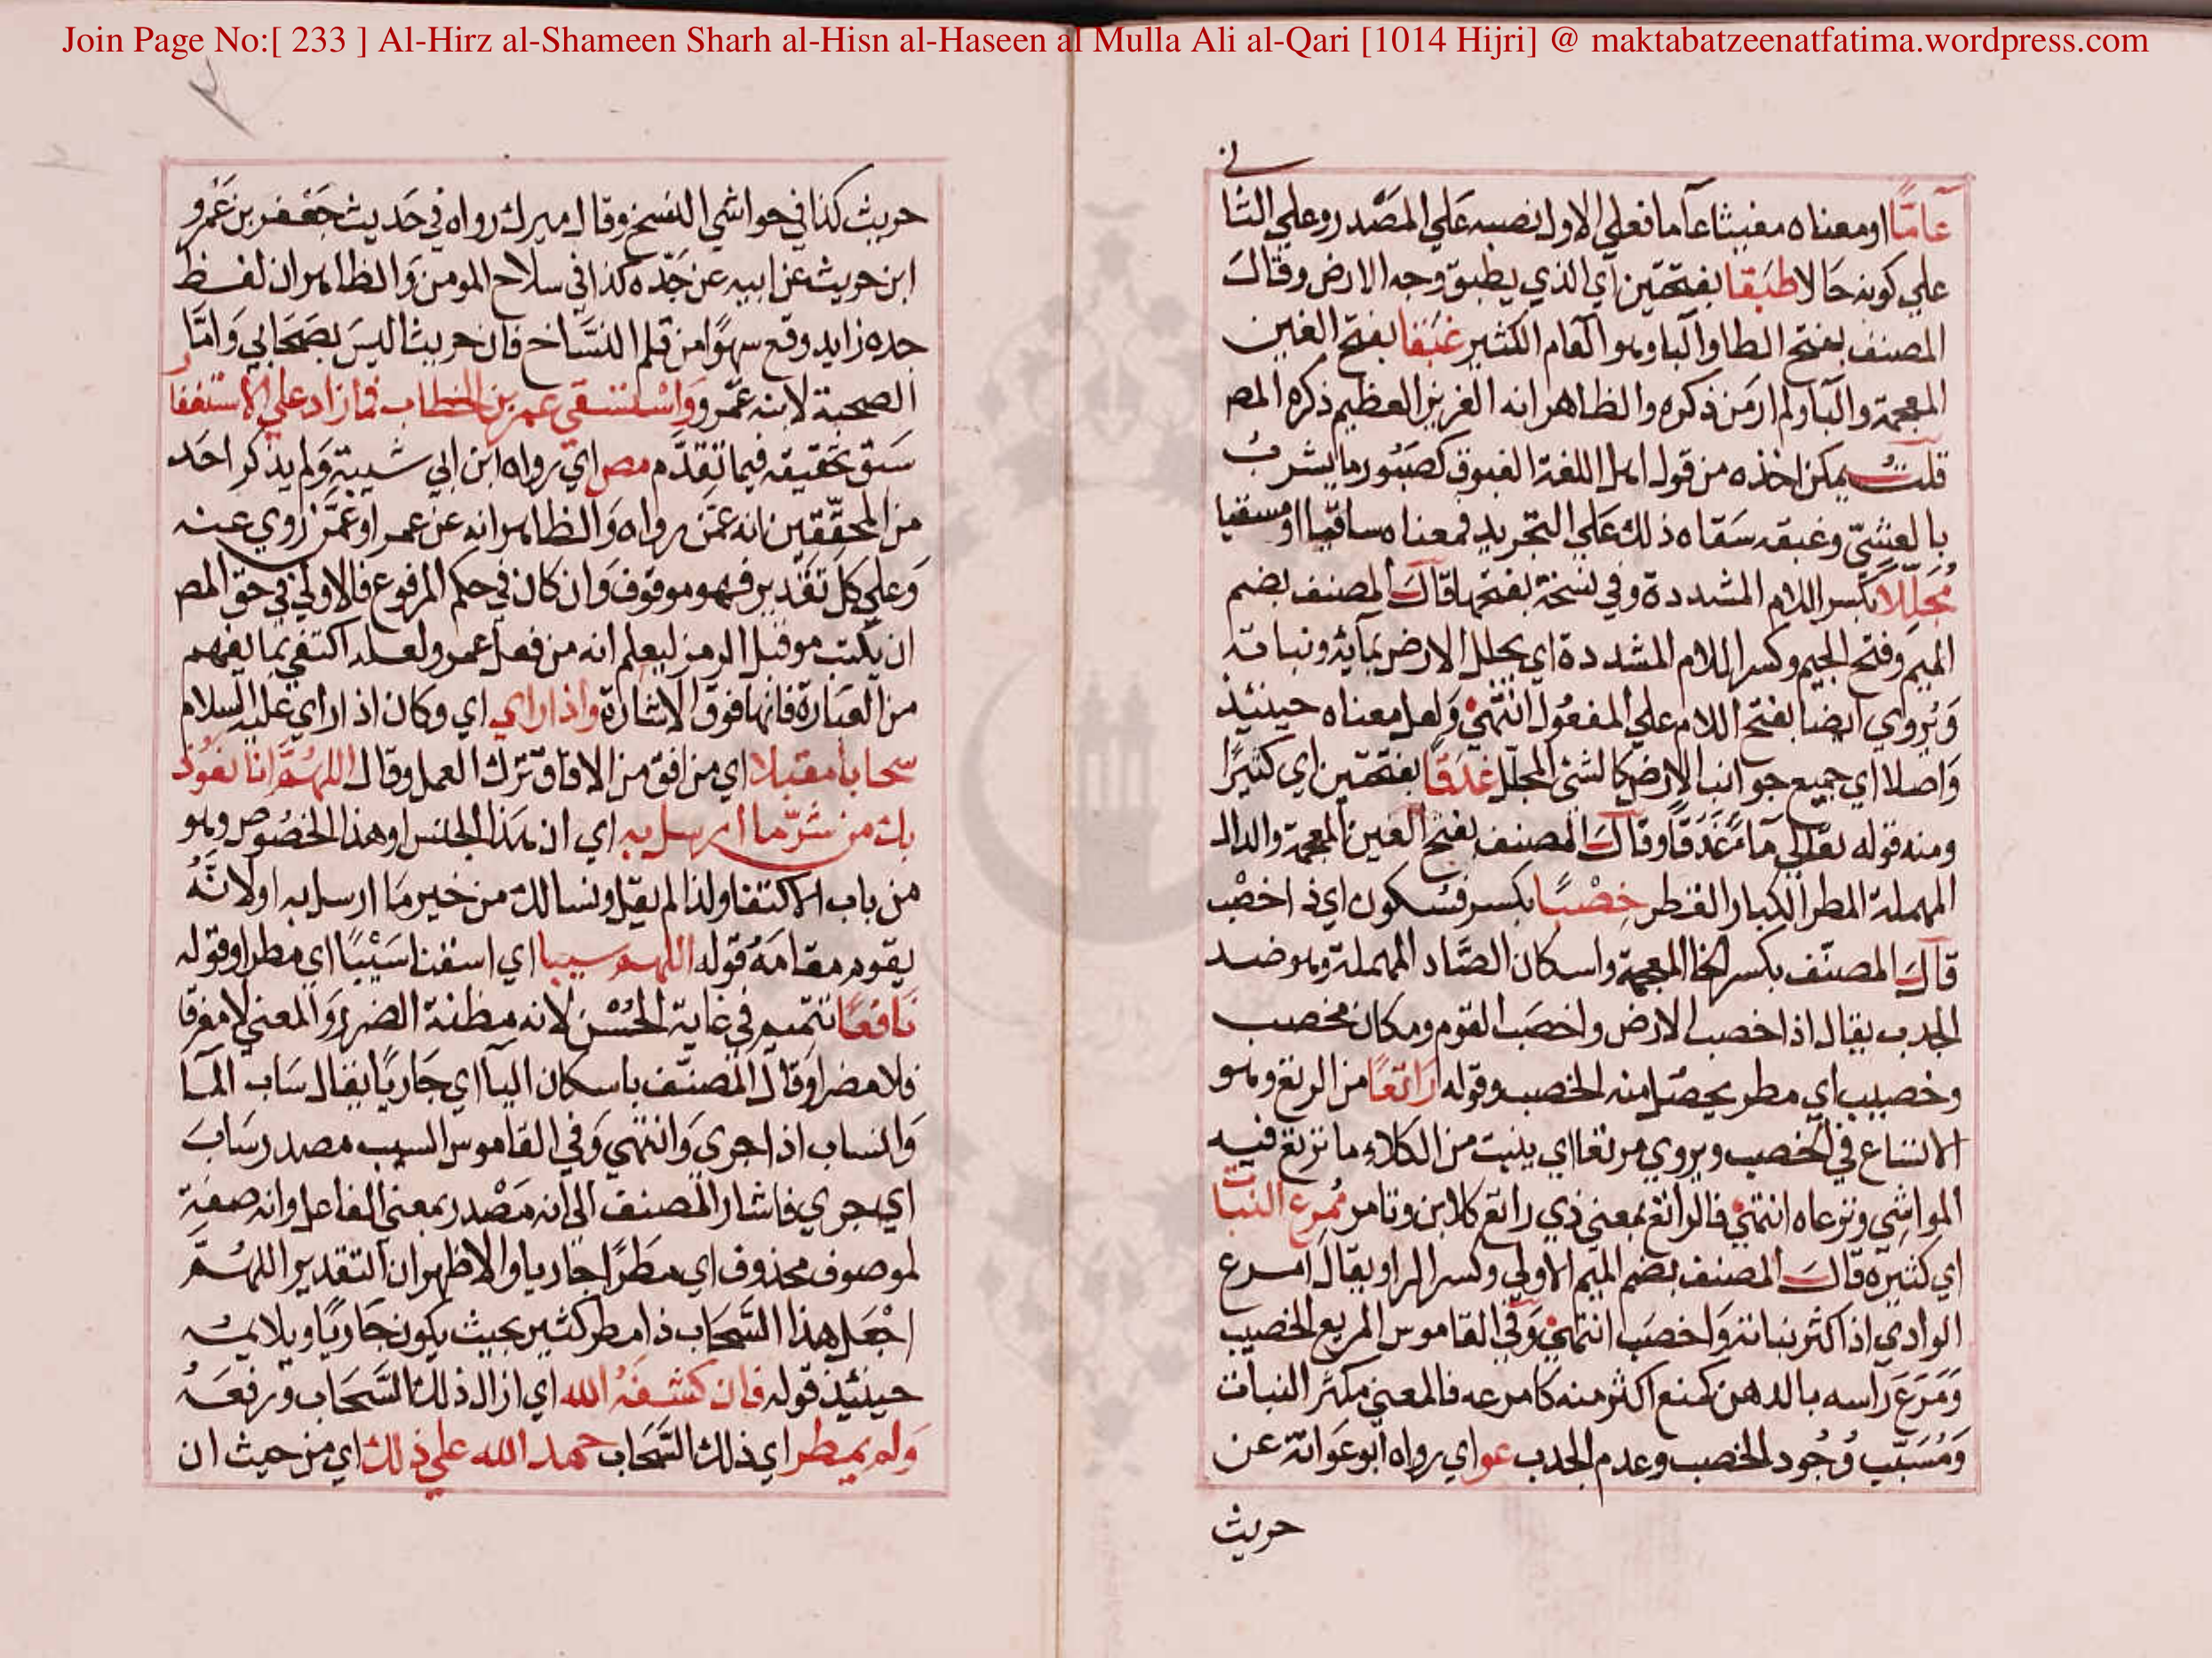 Join Page No:[ 233 ] Al-Hirz al-Shameen Sharh al-Hisn al-Haseen al Mulla Ali al-Qari [1014 Hijri] @ maktabatzeenatfatima.wordpress.com
عامًّا او معناه مغيثا عآما فعلي الاول نصبه علي المصدر وعلي الثا
ني
علي كونه حَالا طبَقا بفتحتين اي الذي يطبق وجه الارض وقالَ
المصنف بفتح الطا والبا وهو العام الكثير غبَقا بفتح الغين
المعجمة والبآ ولم ار من ذكره والظاهر انه الغزير العظيم ذكره المص
قلت يمكن اخذه من قول اهل اللغة الغبوق كصبُور ما يشربُ
بالعشيّ وغبقه سَقاه ذلك علي التجريد فمعناه ساقيا او مسقيا
مُجلِّلا بكسر اللام المشددة وفي نسخة بفتحها قال المصنف بضم
الميم وفتح الجيم وكسر اللام المشددة اي يجلل الارض بمآئه ونباته
وَيُروي ايضا بفتح اللام علي المفعُول انتهيٰ وَلعل معناه حينئيذ
وَاصلا اي جميع جوانب الارض كالشئ المجلّل غدَقًا بفتحتين اي كثيرًا
ومنه قوله تعالي مآ مَّ غَدَقًا وقالَ المصنف بفتح الغين المعجمة والدال
المهملة المطر الكبار القطر خِصْبًا بكسر فسُكون اي ذا خصْب
قالَ المصنّف بكسر الخا المعجمة واسكان الصَّاد المهملة وهو ضد
الجدب يقال اذا خصب الارض واخصَب القوم ومكان مخصب
وخصيب اي مطر يحصُل منه الخصب وقوله رَاتعًا من الرتع وهو
الاتساع في الخصب ويروي مرتعا اي ينبت من الكلاءِ ما ترتع فيه
المواشي وترعاه انتهيٰ فالراتع بمعني ذي راتع كلابن وتامر مُمرِع النبات
اي كثيره قالَ المصنف بضم الميم الاولي وكسر الرا ويقال امرع
الوادي اذا كثر نباته وَاخصَب انتهيٰ وفي القاموس المريع الخصيب
وَمَرَعَ رَاسه بالدهن كمنع اكثر منه كامرعه فالمعني مكثر النبات
وَمُسَبّب وُجُود الخصب وعدم الجدب عو اي رواه ابو عَوَانة عن
حريث
حريث كذا في حواشي النسخ وقال ميرك رواه في حَديث جَعْفر بن عَمْرو
ابن حريث عن ابيه عن جَدّه كذا في سلاح المومن وَالظاهر ان لفظ
جده زايد وقع سهوًا من قلم النسَّاخ فان حريثا ليسَ بصَحَابي وَامّا
الصحبة لابنه عمرو وَاسْتسقي عمر بن الخطاب فما زاد علي الاستغفار
سَبق تحقيقه فيما تقدَّم مص اي رواه ابن ابي شيبة وَلم يذكر احَد
من المحقّقين انه عمّن رواه وَالظاهر انه عن عمر او عمّن رَوي عنه
وَعلي كل تقدير فهو موقوف وَان كان في حكم المرفوع فالاولي في حق المص
ان يكتب مو قبل الرمز ليعلم انه من فعل عمر ولعله اكتفي بما يفهم
من العبَارة فانها فوق الاشارة واذا راي اي وكان اذا راي عليه السلام
سحابا مقبلا اي من افق من الافاق ترك العمل وقال اللهُمَّ انا نعُوذ
بك من شرّ ما ارسل به اي ان هذا الجنس او هذا الخصُوص وهو
من باب الاكتفا ولذا لم يقل ونسالك من خير مَا ارسل به او لانَّهُ
يقوم مقامَهُ قوله اللهم سيبا اي اسقنا سَيْبًا اي مطرا وقوله
نَافعًا تتميم في غاية الحُسْن لانه مظنة الضرر وَالمعني لا مغرقا
فلا مضرا وَقال المصنّف باسكان اليآ اي جَاريًا يقال سَاب المآ
وَانساب اذا جري وَانتهي وَفي القاموس السيب مصدر سَابَ
اي جري فاشار المصنف الي انه مَصْدر بمعني الفاعل وانه صفة
لموصوف محذوف اي مَطَرًا جاريا والاظهر ان التقدير اللهُمَّ
اجْعَل هذا السَّحَاب ذا مطر كثير بحيث يكون جَاريًا ويلايمُه
حينئيذ قوله فان كشفَهُ الله اي ازال ذلك السَّحَاب ورفعَهُ
وَلم يمطر اي ذلك السَّحَاب حمد الله علي ذلك اي من حيث ان